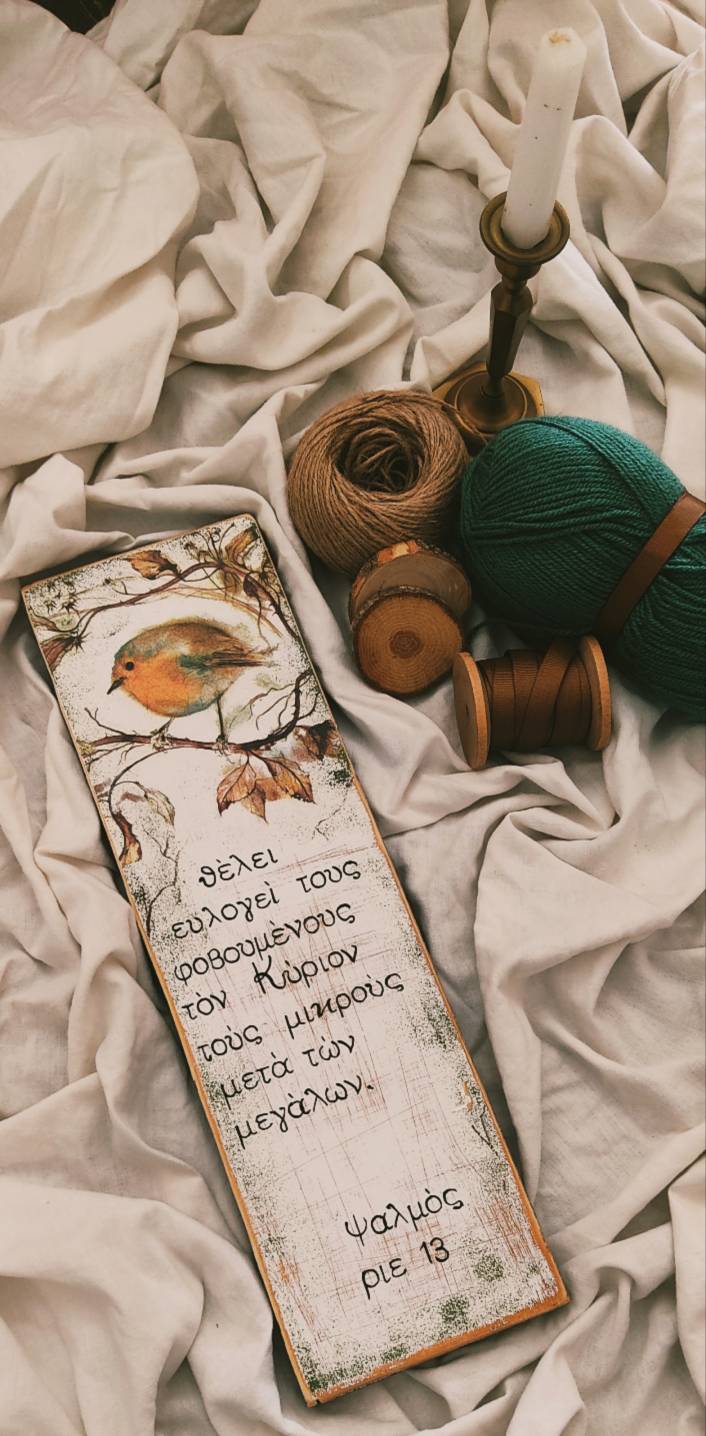 θὲλει
ευλογεὶ τους
φοβουμὲνους
τὸν Κὺριον
τοὺς μικροὺς
μετὰ τὼν
μεγὰλων.
ψαλμὸς
ριε 13